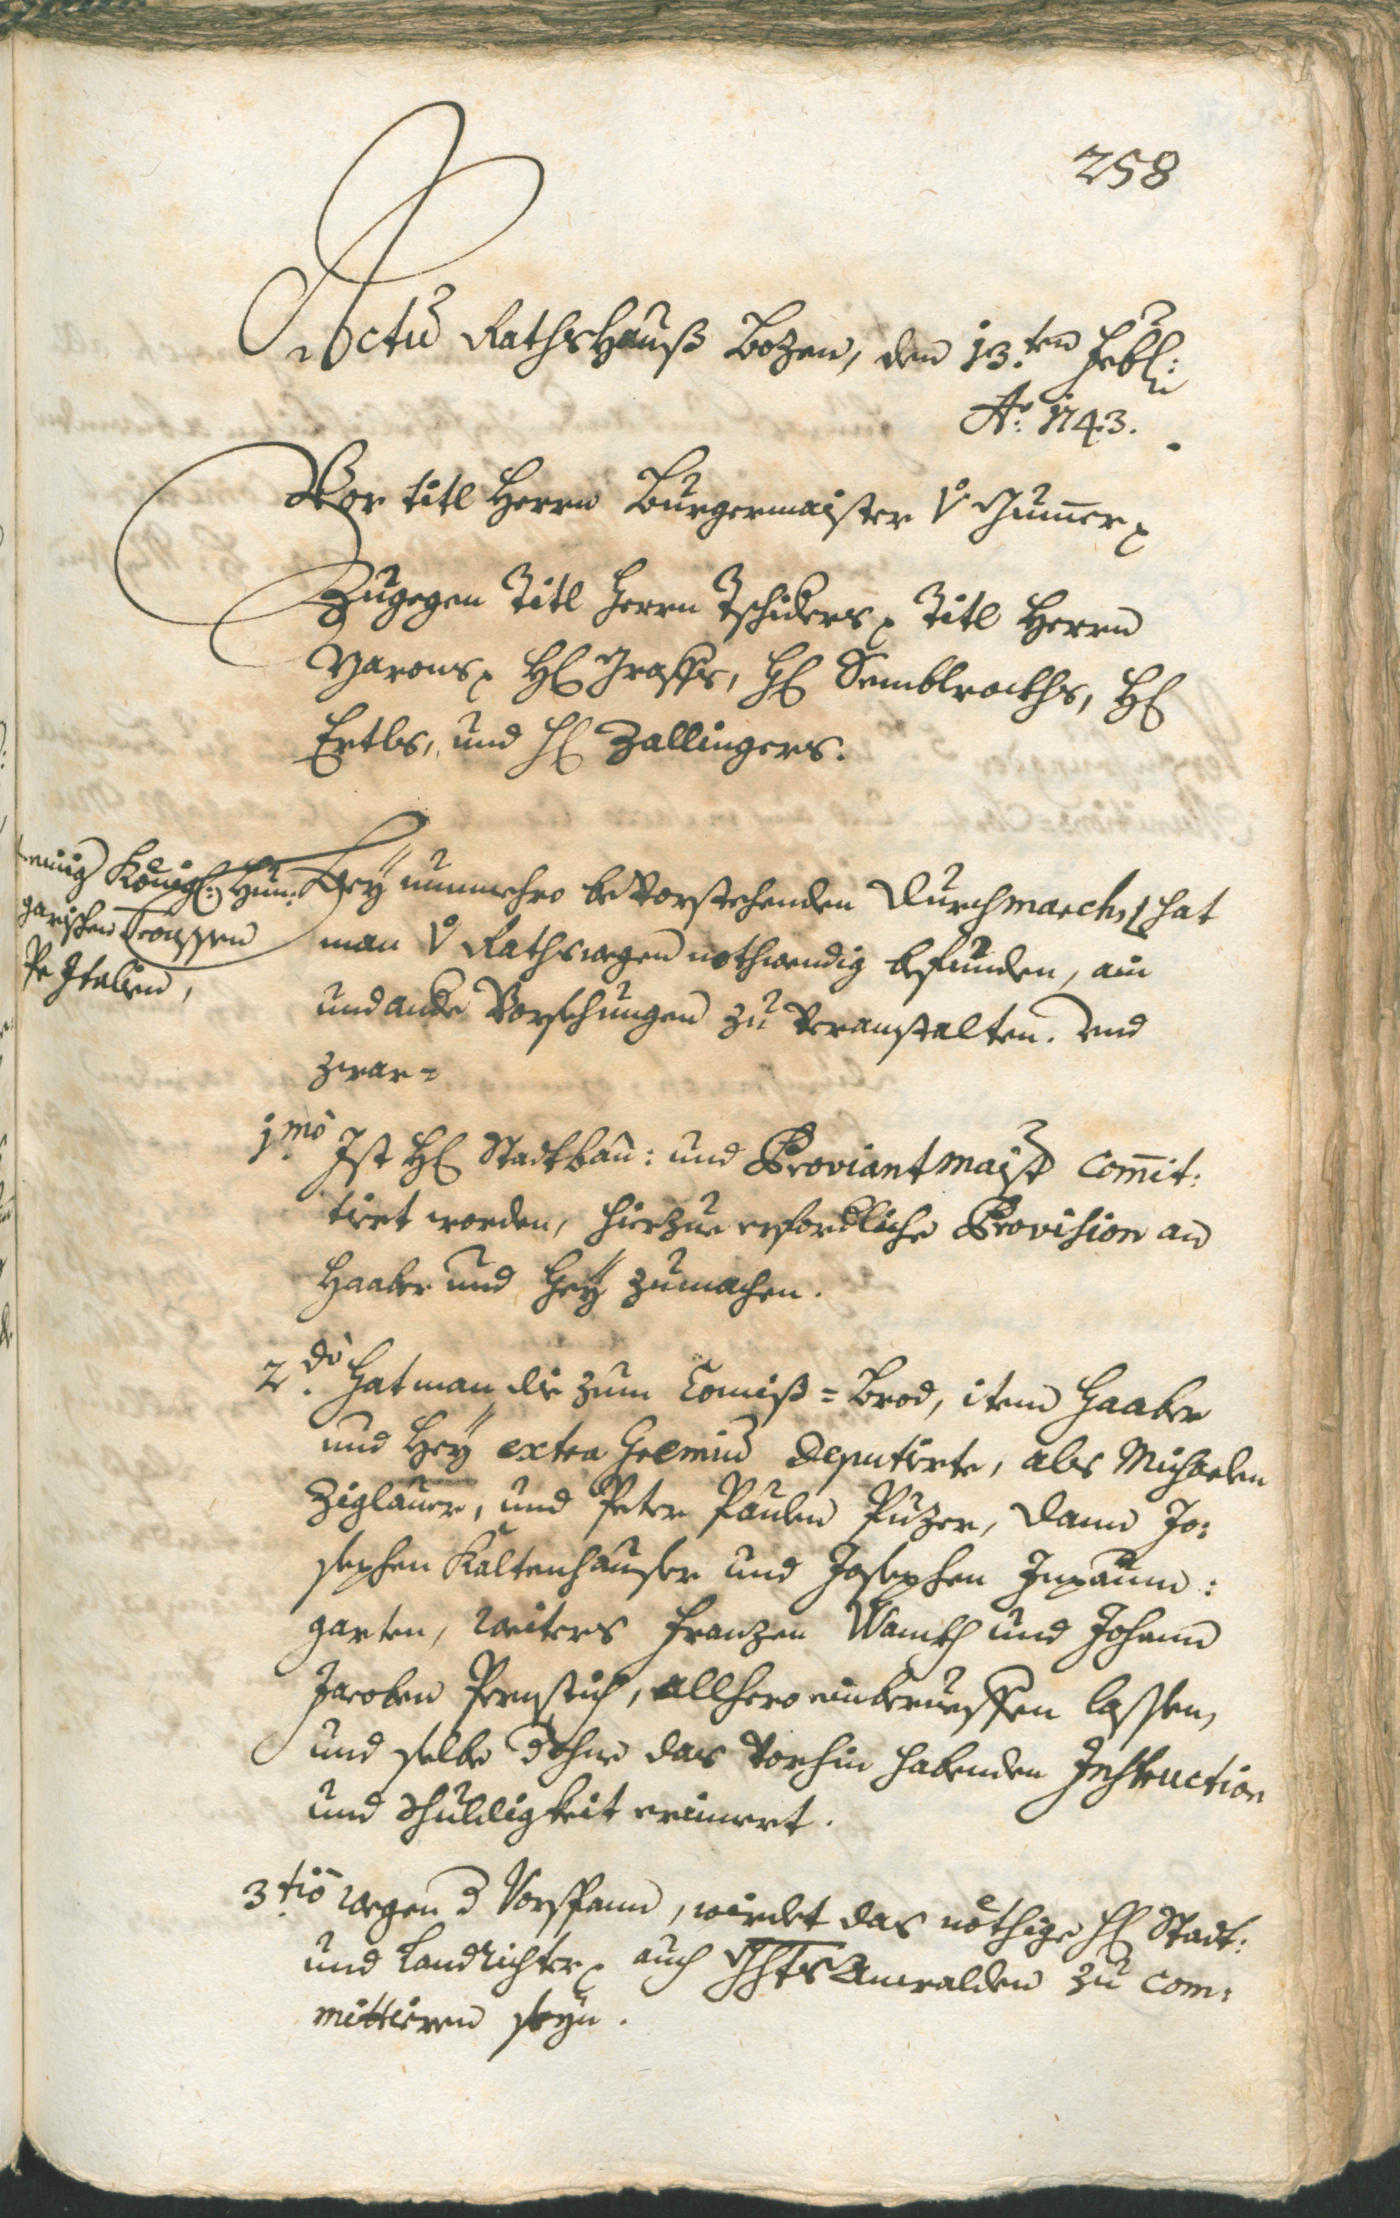 258
Actū Rathshauß Bozen, den 13.ten Febr:
Aō: 1743.
Vor titl Herrn Burgermaister v Gumer
Zugegen Titl Herrn Tschiders, Titl Herrn
Marons, H Grasß, H Semblrockhs, H
Ertls, und H Zallingers.
einig Königl: Hun:
garischen Trouppen
Pr Italien,
Bey nunmehro bevorstehenden Durchmarch, hat
man v Rathswegen nothwendig befunden, ain
und andre Vorsehungen zu veranstalten. Und
zwar=
1mo Ist H Stadtbau: und Proviantmaistr com̄it:
tirt worden, hierzue erfordliche Provision an
Haaber und Hey zumachen.
2do. Hat man die zum Comiß=Brod, item Haaber
und Hey extra Gremiū deputirte, als Michaelen
Ziglauer, und Peter Paulen Puzer, dann Jo:
sephen Kaltenhauser und Josephen Inpaum:
garten, weiters Franzen Wamkh und Johann
Jacoben Pernstich, allhero einberueffen lassen,
und selbe der vorhin habenden Instruction
und Schuldigkeit erinnert.
3tiō wegen d Vorspann, wirdet das nöthige H Stadt:
und Landrichter, auch Ghts Anwalden zu com:
mittieren seyn.